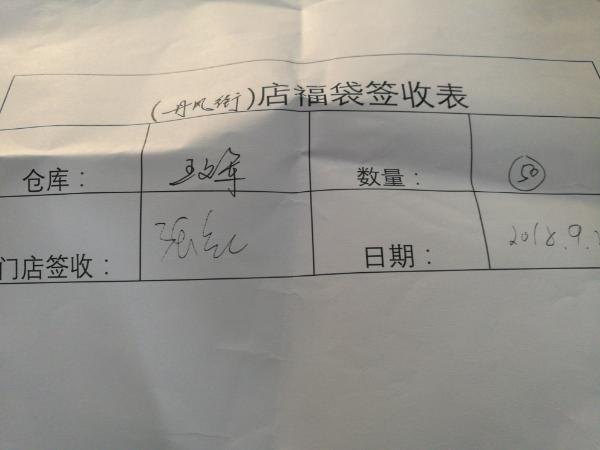 (丹凤街)店福袋签收表
仓库: 王文军 数量: 50
门店签收: 张红 日期: 2018.9.